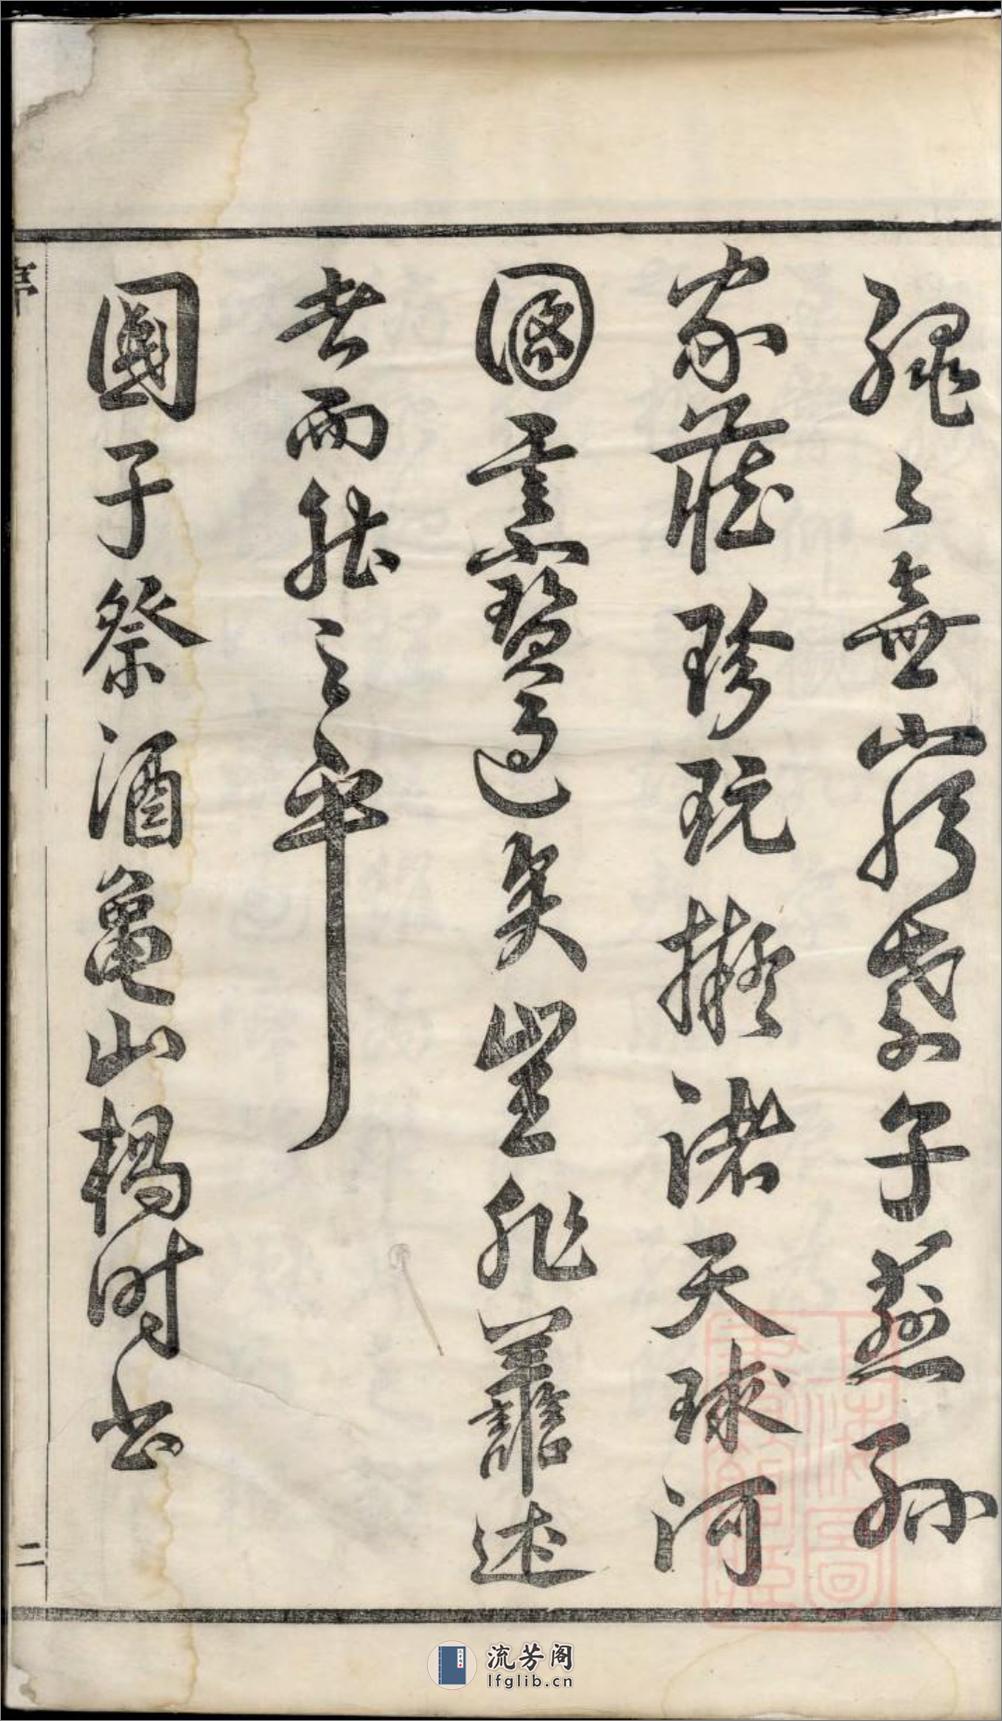 繩〻無窮替子茲孫
家藏珍玩擬諸天球河
圖其寶遠矣豈非善述
者而能之乎
國子祭酒龜山楊時書
序
二
流芳阁
lfglib.cn